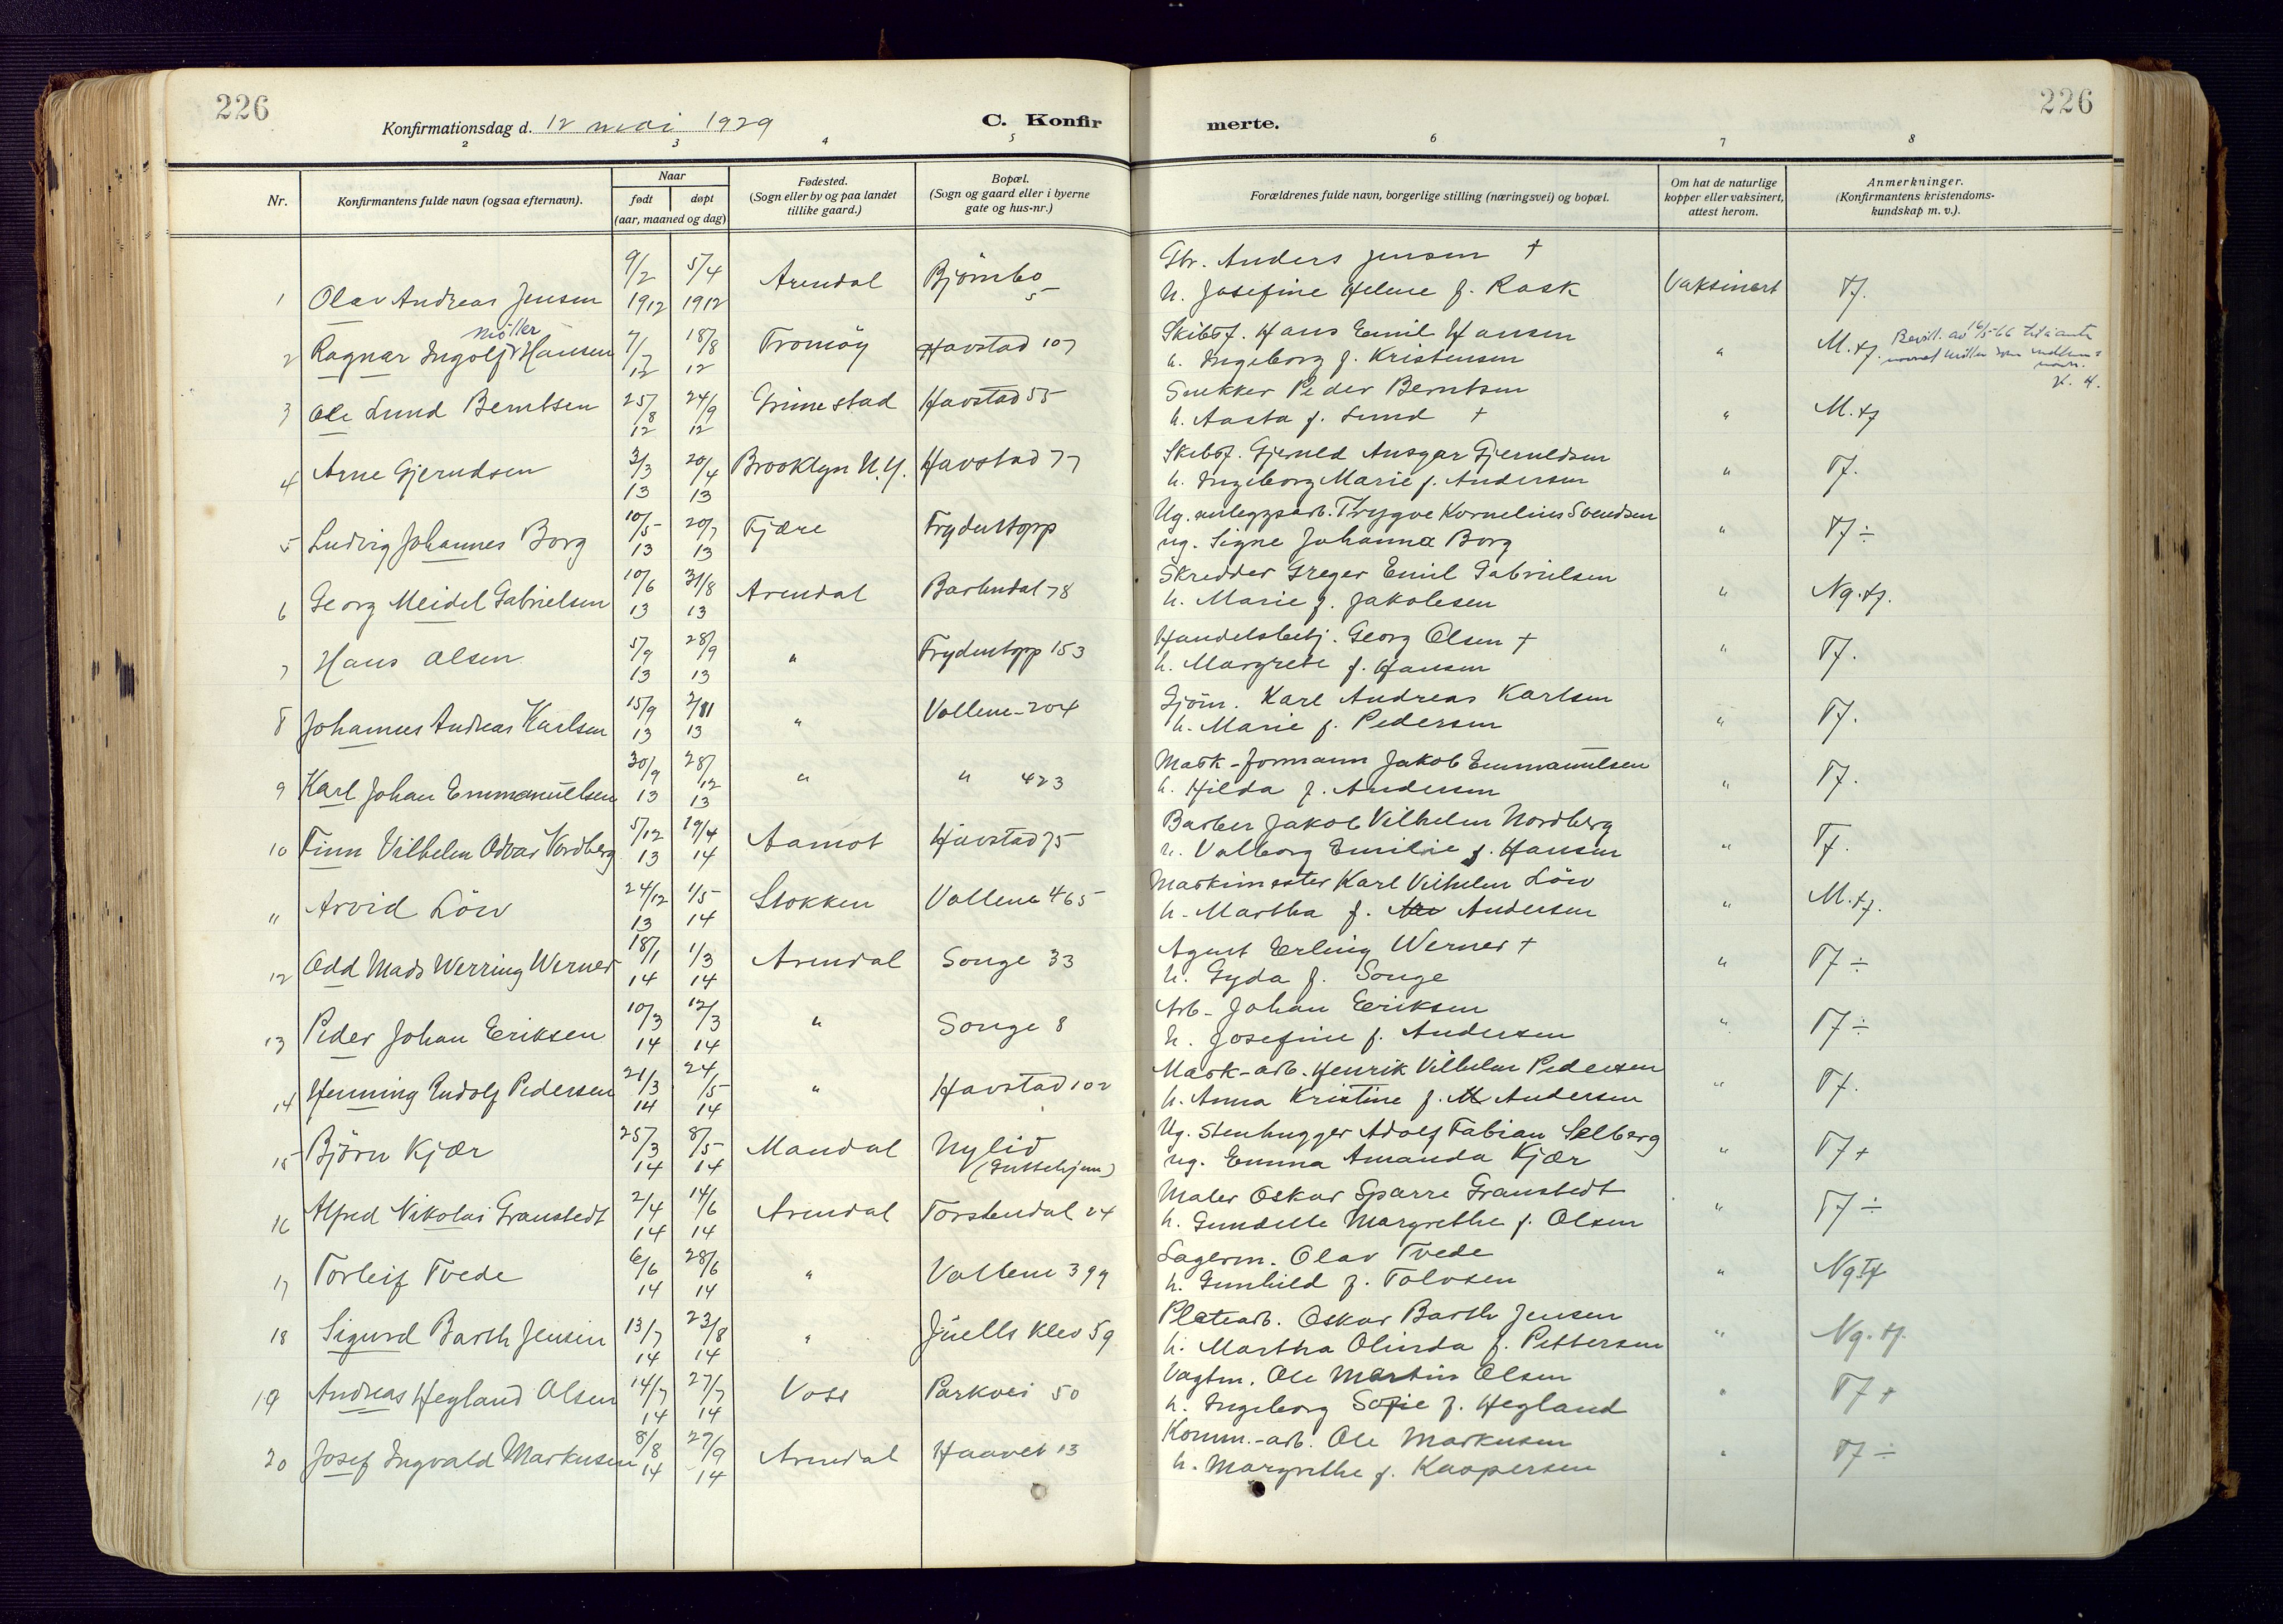 226
226
Konfirmationsdag d. 12 mai 1929
C. Konfir
merte.
2 3 4 5 6 7 8
Nr.
Konfirmantens fulde navn (ogsaa efternavn).
Naar
født døpt
(aar, maaned og dag)
Fødested.
(Sogn eller by og paa landet
tillike gaard.)
Bopæl.
(Sogn og gaard eller i byerne
gate og hus-nr.)
Forældrenes fulde navn, borgerlige stilling (næringsvei) og bopæl.
Om hat de naturlige
kopper eller vaksinert,
attest herom.
Anmerkninger.
(Konfirmantens kristendoms-
kundskap m. v.).
Gbr. Anders Jensen †
1 Olav Andreas Jensen 9/2 1912 5/4 1912 Arendal Bjömbo 5 h. Josefine Helene f. Rask Vaksinert Tf.
Möller
Skibsf. Hans Emil Hansen
2 Ragnar Ingolf Hansen 7/7 12 18/8 12 Tromöy Havstad 107 h. Ingeborg f. Kristensen " M.tf. Bevill. av 16/5-66 til å anta
navnet Möller som mellom=
navn.
K. H.
Snekker Peder Berntsen
3 Ole Lund Berntsen 25/8 12 24/9 12 Grimestad Havstad 55 h. Aasta f. Lund † " M.tf
Skibsf. Gjeruld Ansgar Gjeruldsen
4 Arne Gjerudsen 3/3 13 20/4 13 Brooklyn N.Y. Havstad 77 h. Ingeborg Marie f. Andersen " Tf.
Ug. anleggsarb. Trygve Kornelius Svendsen
5 Ludvig Johannes Borg 10/5 13 20/7 13 Fjære Frydentopp ug. Signe Johanna Borg " Tf ÷
Skredder Greger Emil Gabrielsen
6 Georg Meidel Gabrielsen 10/6 13 31/8 13 Arendal Barbudal 78 h. Marie f. Jakobsen " Ng.tf.
Handelsbetj. Georg Olsen †
7 Hans Olsen 5/9 13 28/9 13 " Frydentopp 153 h. Margrete f. Hansen " Tf.
Gjörn. Karl Andreas Karlsen
8 Johannes Andreas Karlsen 15/9 13 2/11 13 " Vollene 204 h. Marie f. Pedersen " Tf.
Mask-formann Jakob Emmanuelsen
9 Karl Johan Emmanuelsen 30/9 13 28/12 13 " " 423 h. Hilda f. Andersen " Tf.
Barber Jakob Vilhelm Nordberg
10 Finn Vilhelm Odvar Nordberg 5/12 13 19/4 14 Aamot Havstad 75 h. Valborg Emilie f. Hansen " Tf.
Maskimester Karl Vilhelm Löw
11 Arvid Löw 24/12 13 1/5 14 Stokken Vollene 465 h. Martha f. Andersen " M.tf.
Agent Erling Werner †
12 Odd Mads Werring Werner 18/1 14 1/3 14 Arendal Songe 33 h. Gyda f. Songe " Tf ÷
Arb. Johan Eriksen
13 Peder Johan Eriksen 10/3 14 12/3 14 " Songe 8 h. Josefine f. Andersen " Tf ÷
Mask-arb. Henrik Vilhelm Pedersen
14 Henning Rudolf Pedersen 21/3 14 24/5 14 " Havstad 102 h. Anna Kristine f. Andersen " Tf.
Ug. Stenhugger Adolf Fabian Selberg
15 Björn Kjær 25/3 14 8/5 14 Mandal Nylid
(Guttehjem) ug. Emma Amanda Kjær " Tf +
Maler Oskar Sparre Granstedt
16 Alfred Nikolai Granstedt 2/4 14 14/6 14 Arendal Torstendal 24 h. Gundelle Margrethe f. Olsen " Tf ÷
Lagerm. Olav Tvede
17 Torleif Tvede 6/6 14 28/6 14 " Vollene 399 h. Gunhild f. Tolvsen " Ng Tf
Platearb. Oskar Barth Jensen
18 Sigurd Barth Jensen 13/7 14 23/8 14 " Juells klev 59 h. Martha Olinda f. Pettersen " Ng. tf.
Vagtm. Ole Martin Olsen
19 Andreas Hegland Olsen 14/7 14 27/7 14 Voss Parkvei 50 h. Ingeborg Sofie f. Hegland " Tf +
Komm.-arb. Ole Markusen
20 Josef Ingvald Markusen 8/8 14 27/9 14 Arendal Haavet 13 h. Margrethe f. Kaspersen " Tf ÷